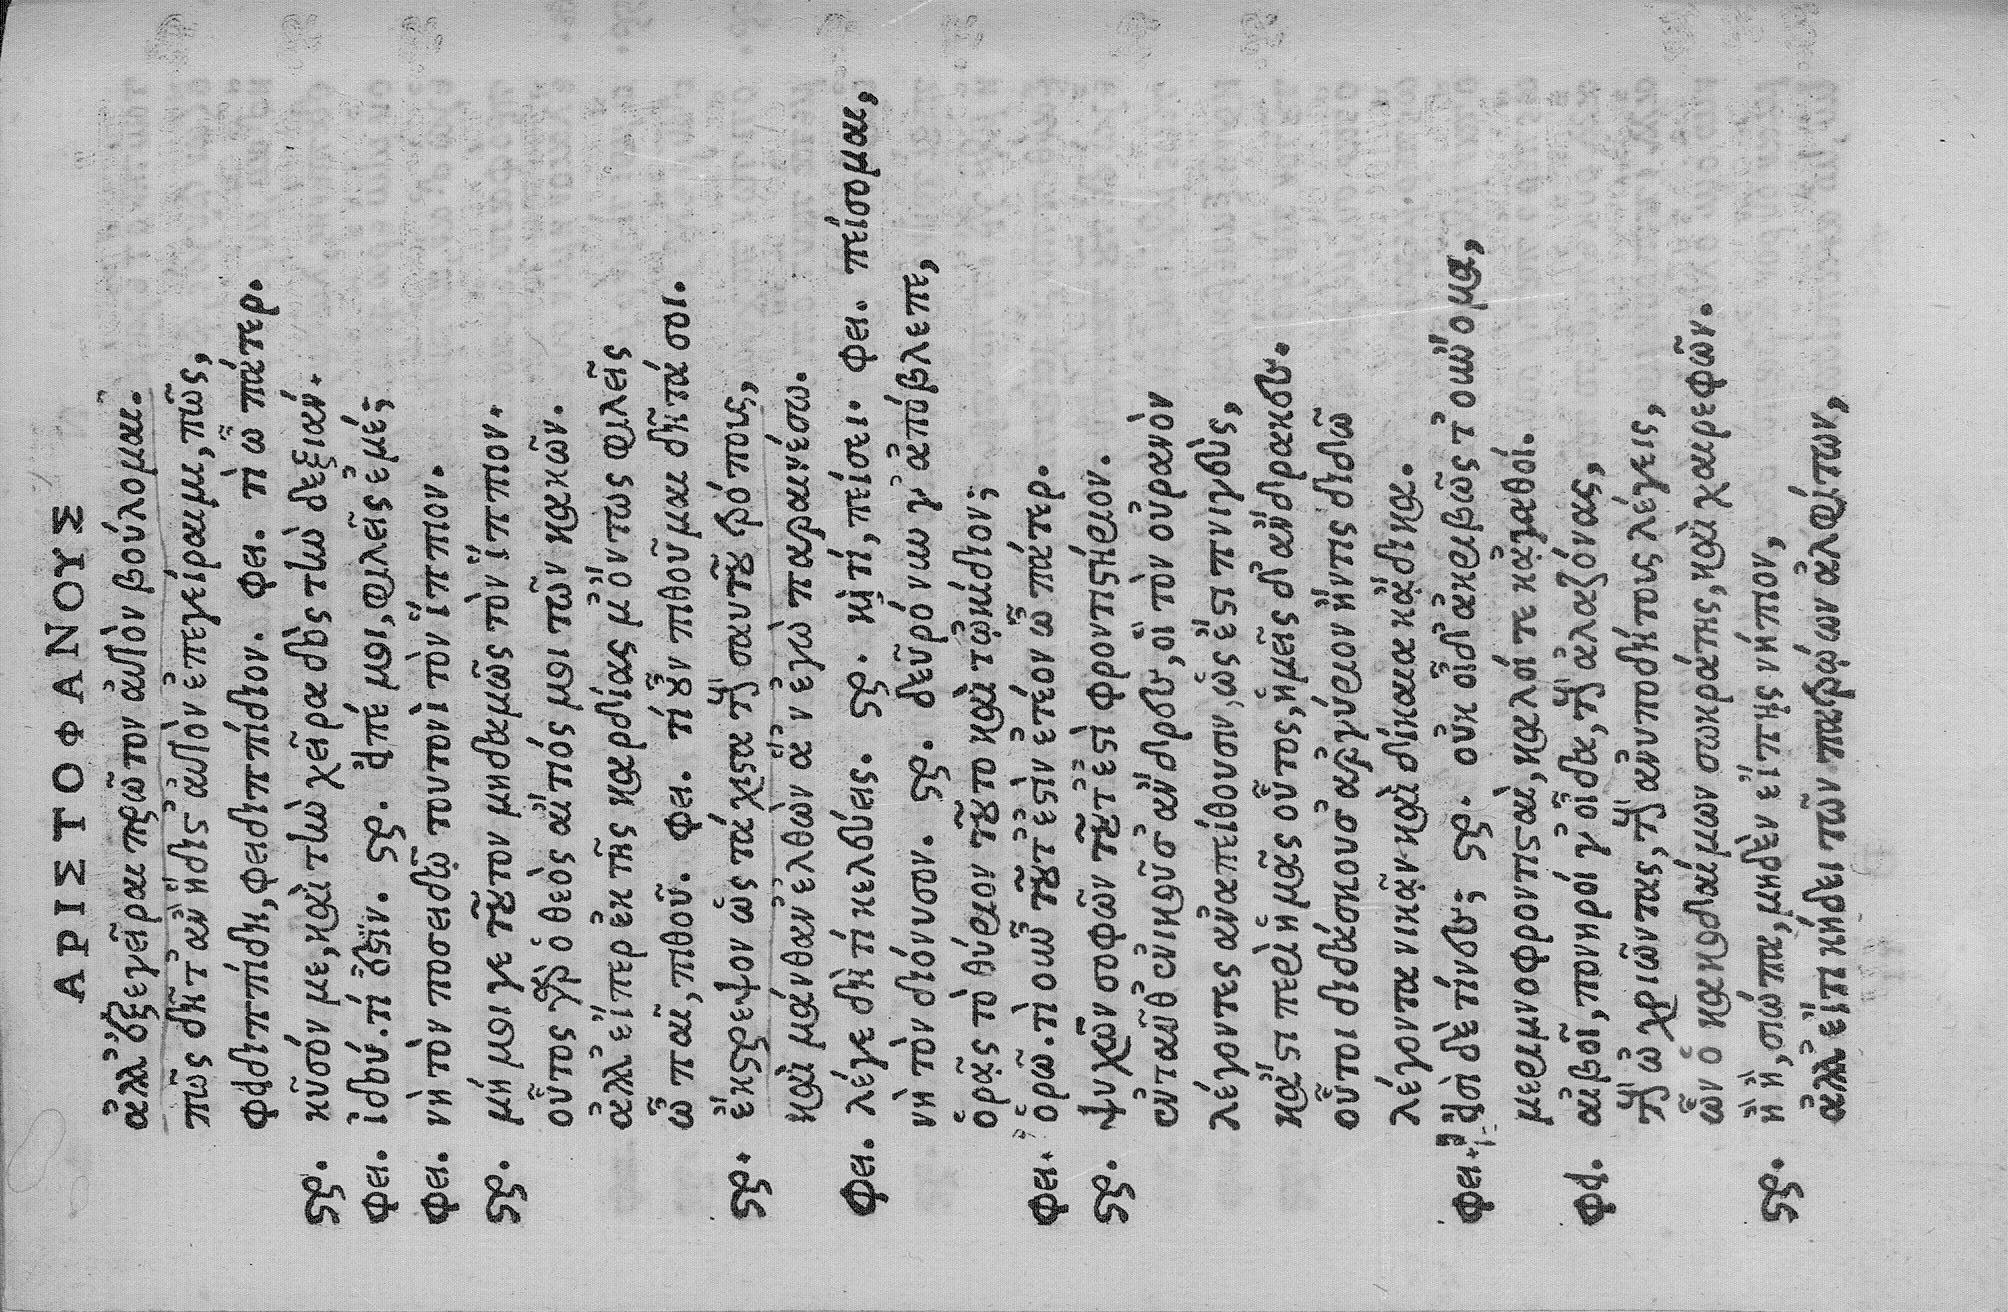 ΑΡΙΣΤΟΦΑΝΟΥΣ
ἀλλ' ἐξεγεῖραι πρῶτον αὐτὸν βούλομαι.
πῶς δῆτ' ἂν ἥδιστ' αὐτὸν ἐπεγείραιμι, πῶς,
φειδιππίδη, φειδιππίδιον. φει. τί ὦ πάτερ.
στρ. κῦσόν με, καὶ τὴν χεῖρα δὸς τὴν δεξιάν.
φει. ἰδού. τί ἔστιν. στρ. εἰπέ μοι, φιλεῖς ἐμέ;
φει. νὴ τὸν ποσειδῶ τουτονὶ τὸν ἵππιον.
στρ. μή μοι γε τοῦτον μηδαμῶς τὸν ἵππιον.
οὗτος γὰρ ὁ θεὸς αἴτιός μοι τῶν κακῶν.
ἀλλ' εἴπερ ἐκ τῆς καρδίας μ' ὄντως φιλεῖς
ὦ παῖ, πιθοῦ. φει. τί οὖν πιθοῦμαι δῆτά σοι.
στρ. ἔκστρεψον ὡς τάχιστα τοὺς σαυτοῦ τρόπους,
καὶ μάνθαν' ἐλθὼν ἃ 'ν ἐγὼ παραινέσω.
φει. λέγε δὴ τί κελεύεις. στρ. καί τι, πείσει. φει. πείσομαι,
νὴ τὸν διόνυσον. στρ. δεῦρό νυν γ' ἀπόβλεπε,
ὁρᾷς τὸ θύριον τοῦτο καὶ τᾠκίδιον;
φει. ὁρῶ. τί οὖν τοῦτ' ἐστὶν ἐτέον ὦ πάτερ.
στρ. ψυχῶν σοφῶν τοῦτ' ἐστὶ φροντιστήριον.
ἐνταῦθ' ἐνοικοῦσ' ἄνδρες, οἳ τὸν οὐρανὸν
λέγοντες ἀναπείθουσιν, ὡς ἔστι πνιγεὺς,
κἄστι περὶ ἡμᾶς οὗτος, ἡμεῖς δ' ἄνδρακες.
οὗτοι διδάσκουσ' ἀργύριον ἤν τις διδῶ
λέγοντα νικᾷν καὶ δίκαια κᾄδικα.
φει. εἰσὶ δὲ τίνες; στρ. οὐκ οἶδ' ἀκριβῶς τοὔνομα,
μεριμνοφροντισταὶ, καλοί τε κᾀγαθοί.
φει. αἰβοῖ, πονηροί γ' οἶδα, τοὺς ἀλαζόνας,
τοὺς ὠχριῶντας, τοὺς ἀνυποδήτους λέγεις,
ὧν ὁ κακοδαίμων σωκράτης, καὶ χαιρεφῶν.
στρ. ἢ ἢ, σιώπα, μηδὲν εἴπῃς νήπιον,
ἀλλ' εἴ τι κήδει τῶν πατρῴων ἀλφίτων,